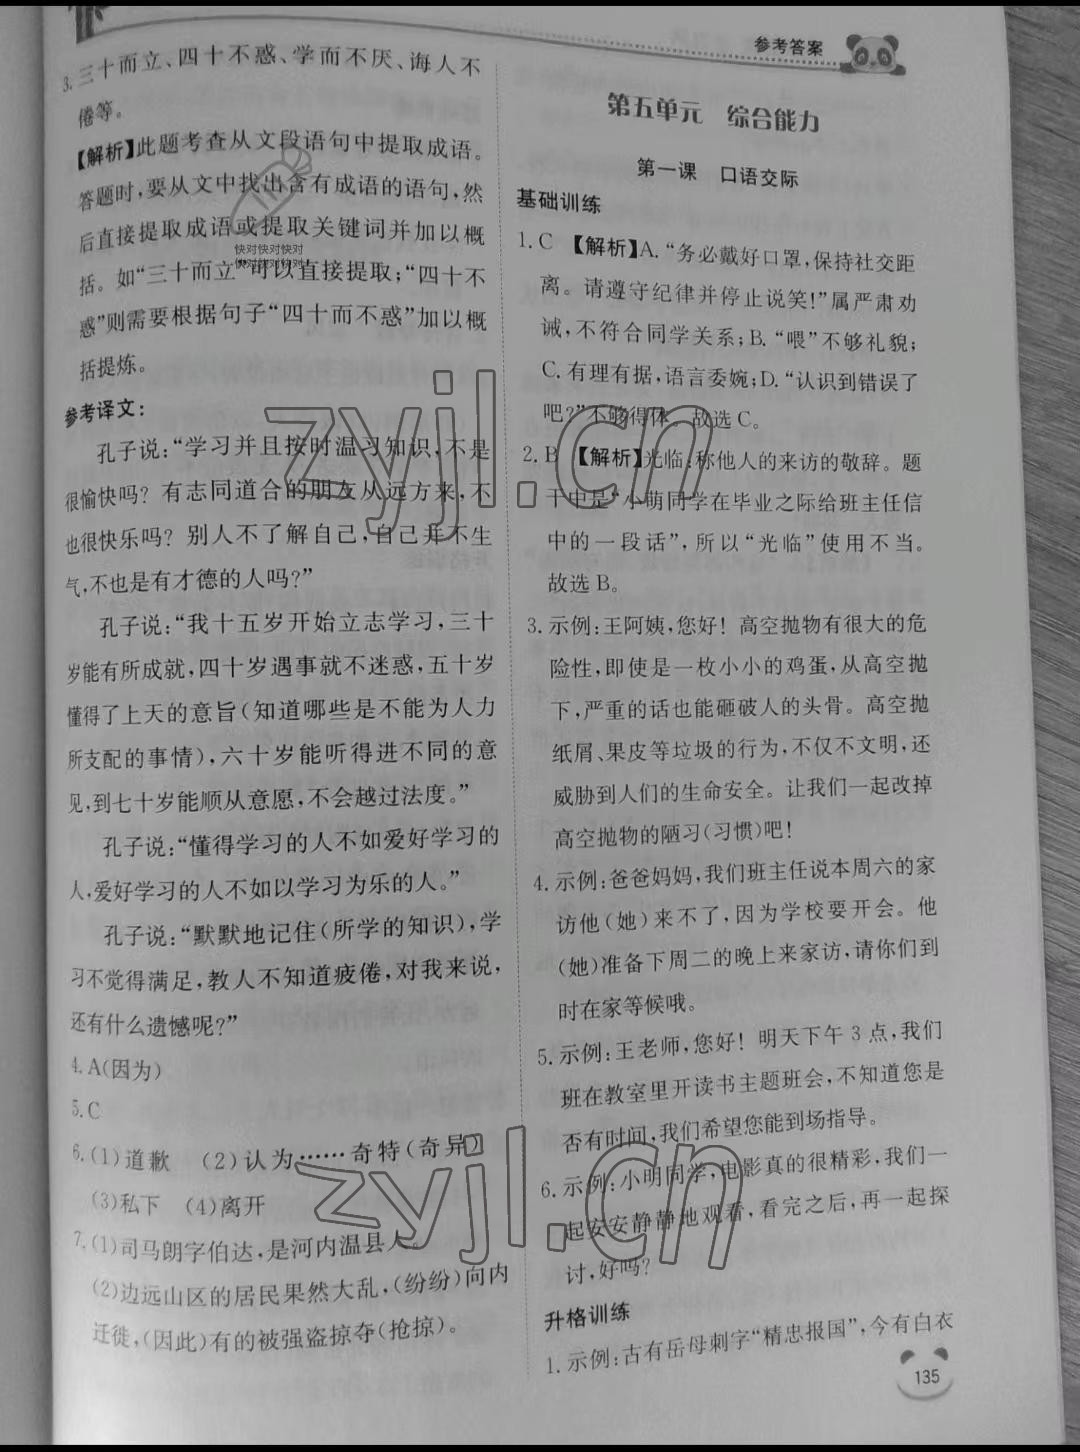 参考答案
3. 三十而立、四十不惑、学而不厌、诲人不
倦等。
【解析】此题考查从文段语句中提取成语。
答题时,要从文中找出含有成语的语句,然
后直接提取成语或提取关键词并加以概
括。如“三十而立”可以直接提取;“四十不
惑”则需要根据句子“四十而不惑”加以概
括提炼。
参考译文:
孔子说:“学习并且按时温习知识,不是
很愉快吗? 有志同道合的朋友从远方来,不
也很快乐吗? 别人不了解自己,自己并不生
气,不也是有才德的人吗?”
孔子说:“我十五岁开始立志学习,三十
岁能有所成就,四十岁遇事就不迷惑,五十岁
懂得了上天的意旨(知道哪些是不能为人力
所支配的事情),六十岁能听得进不同的意
见,到七十岁能顺从意愿,不会越过法度。”
孔子说:“懂得学习的人不如爱好学习的
人,爱好学习的人不如以学习为乐的人。”
孔子说:“默默地记住(所学的知识),学
习不觉得满足,教人不知道疲倦,对我来说,
还有什么遗憾呢?”
4. A(因为)
5. C
6. (1)道歉 (2)认为……奇特(奇异)
(3)私下 (4)离开
7. (1)司马朗字伯达,是河内温县人。
(2)边远山区的居民果然大乱,(纷纷)向内
迁徙,(因此)有的被强盗掠夺(抢掠)。
第五单元 综合能力
第一课 口语交际
基础训练
1. C 【解析】A. “务必戴好口罩,保持社交距
离。请遵守纪律并停止说笑!”属严肃劝
诫,不符合同学关系;B. “喂”不够礼貌;
C. 有理有据,语言委婉;D. “认识到错误了
吧?”不够得体。故选 C。
2. B 【解析】光临:称他人的来访的敬辞。题
干中是“小萌同学在毕业之际给班主任信
中的一段话”,所以“光临”使用不当。
故选 B。
3. 示例:王阿姨,您好! 高空抛物有很大的危
险性,即使是一枚小小的鸡蛋,从高空抛
下,严重的话也能砸破人的头骨。高空抛
纸屑、果皮等垃圾的行为,不仅不文明,还
威胁到人们的生命安全。让我们一起改掉
高空抛物的陋习(习惯)吧!
4. 示例:爸爸妈妈,我们班主任说本周六的家
访他(她)来不了,因为学校要开会。他
(她)准备下周二的晚上来家访,请你们到
时在家等候哦。
5. 示例:王老师,您好! 明天下午 3 点,我们
班在教室里开读书主题班会,不知道您是
否有时间,我们希望您能到场指导。
6. 示例:小明同学,电影真的很精彩,我们一
起安安静静地观看,看完之后,再一起探
讨,好吗?
升格训练
1. 示例:古有岳母刺字“精忠报国”,今有白衣
135
快对快对快对
快对快对快对
zyjl.cn
zyjl.cn